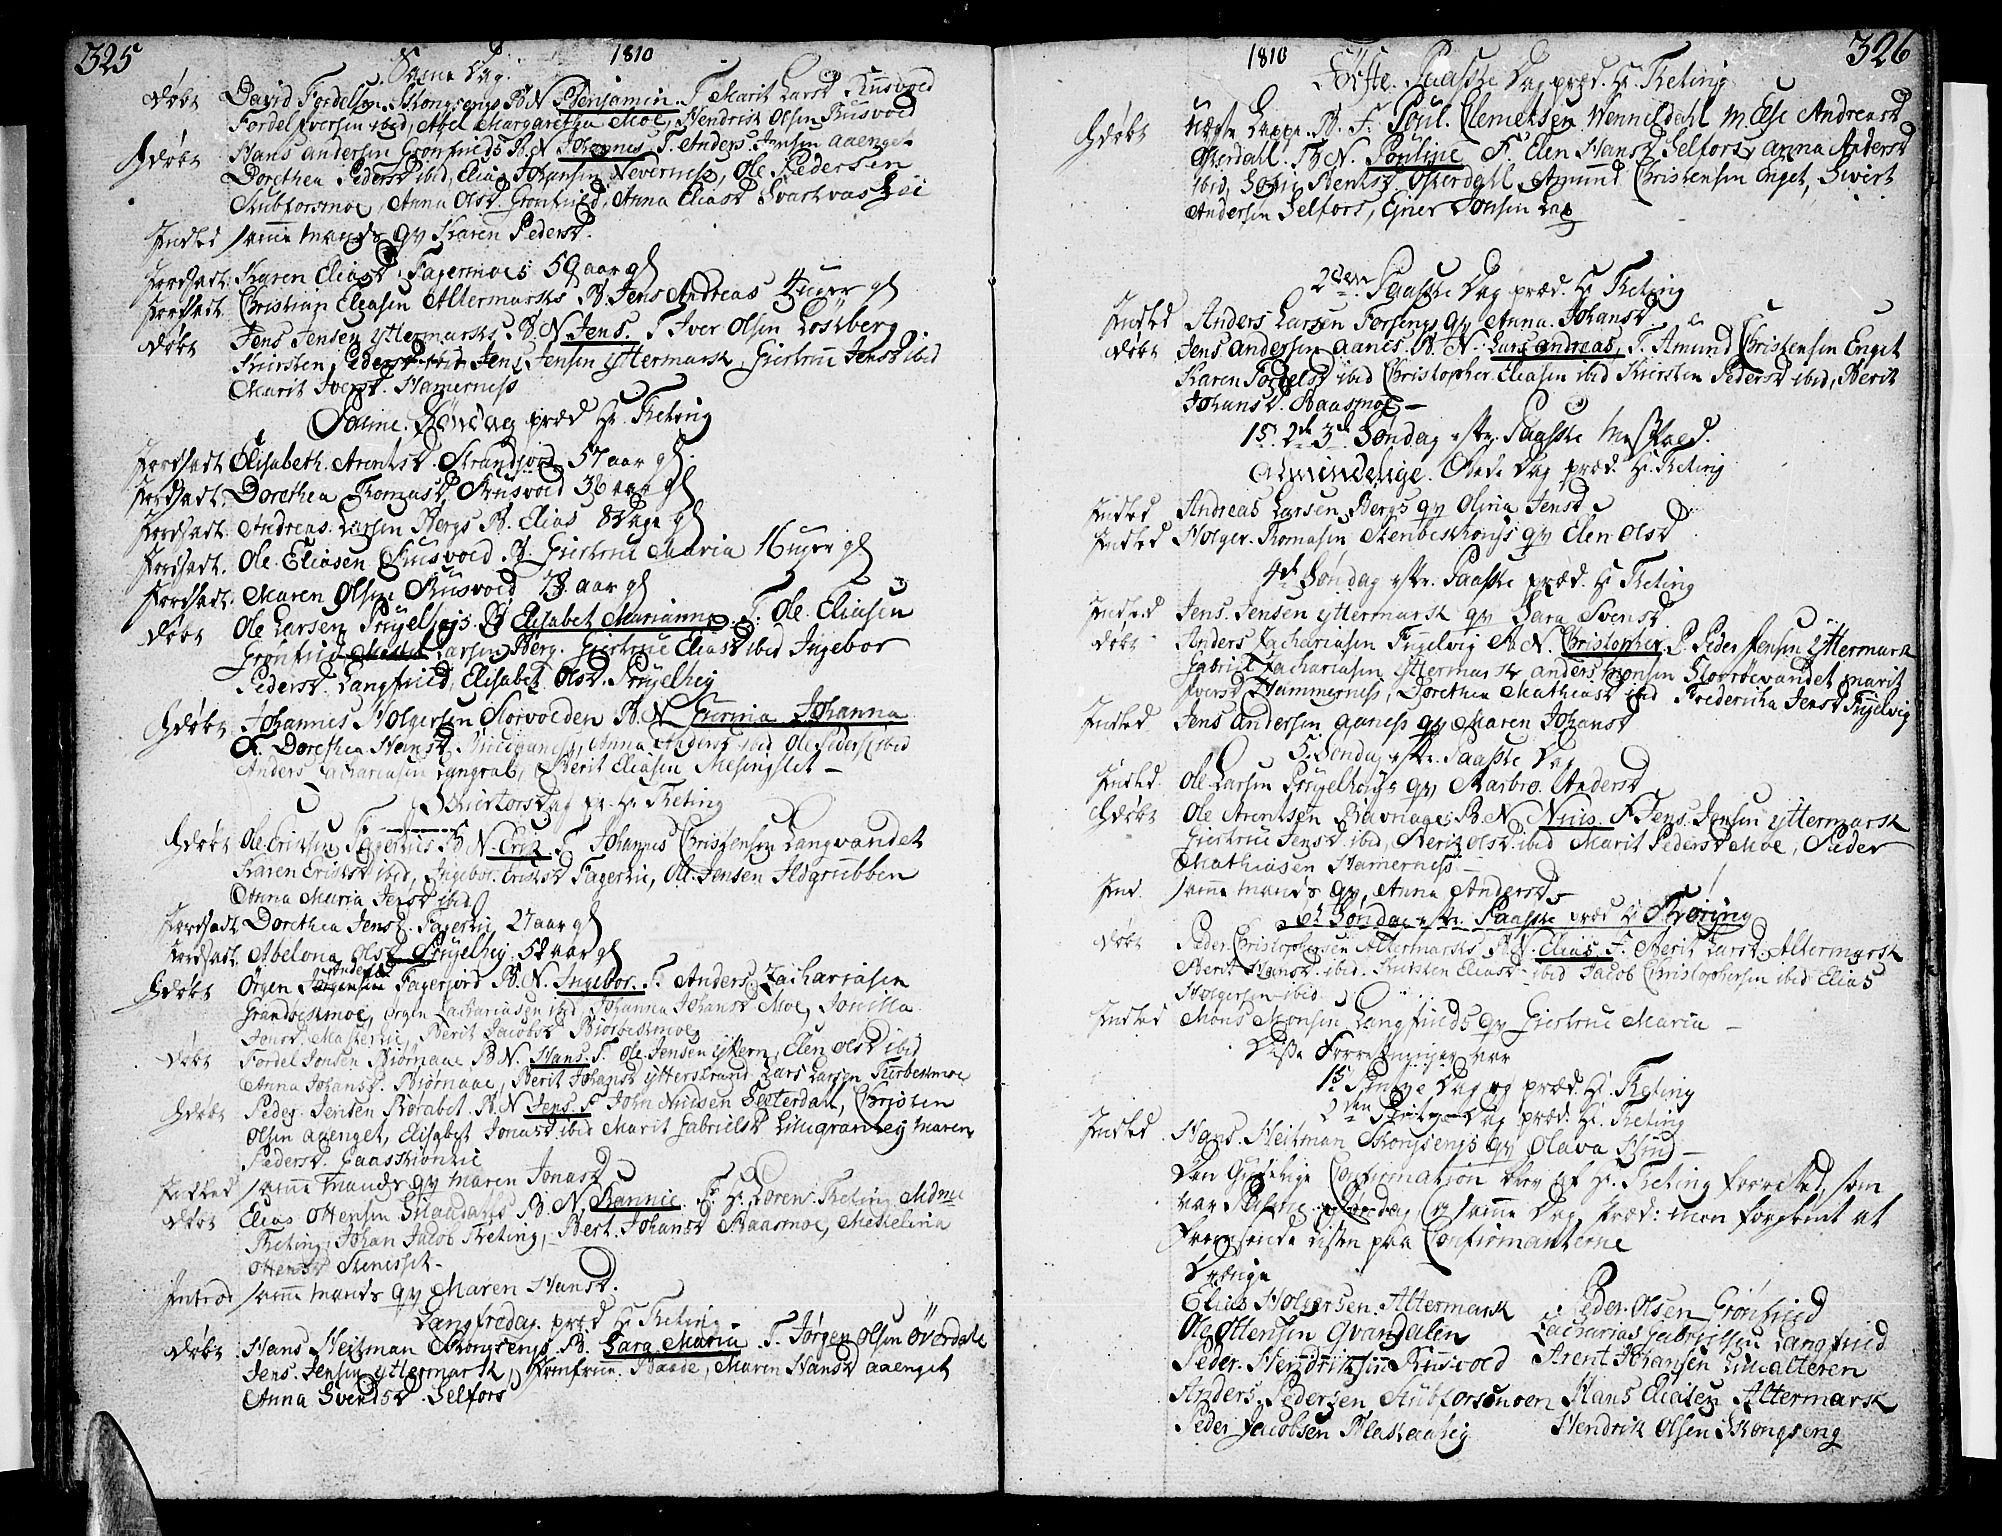 325
1810
Same Dag.
Døbt David Fordelsen Skongsengs B. N. Benjamin. F. Marit Larsd Rusvold
Fordel Iversen ibid, Abel Margaretha Moe, Hendrik Olsen Rusvold
Hans Andersen Grønfieds B. N. Johannes. F. Anders Jonsen aaenget
Dorethea Pedersd ibid, Elias Johansen Nevernes, Ole Pedersen
Stubforsmoe, Anna Olsd. Grønfield, Anna Eliasd Svartvas
Indled samme Mands qv Karen Pedersd.
Jordfæst. Karen Eliasd. Fagermoes 59 aar gl
Jordfæst. Christian Eleasen Altermarks B. Jens Andreas 4 uger gl
Døbt Jens Jensen yttermarks B. N. Jens. F. Iver Olsen
Kiersten Jens Jensen yttermark, Giertrue Jensd ibid
Marit Iversd. Hamerness
Palme Søndag præd Hr. Theting
Jordfæst Elisabeth Arentsd. Strandjord 57 aar gl.
Jordfæst. Dorethea Thomasd, Rusvold 36 aar gl
Jordfæst. Andreas Larsen Bergs B. Elias 8 Dage gl
Jordfæst. Ole Eliasen Rusvold B. Giertrue Maria 16 uger gl
Jordfæst. Maren Olsen Rusvold 73 aar gl
Døbt Ole Larsen B. Elisabet Marianna. F. Ole Eliasen
Grønfield Larsen Berg. Giertrue Eliasd ibid Ingebor
Pedersd. Langfield, Elisabet Olsd.
Johannes Holgersen Storvolden B. N. Johanna
F. Dorethea Anna Andersd ibid Ole Peders. ibid
Anders Zachariasen Langrab, Berit Eliasen Mesingslet
Skiertorsdag pr. Hr. Theting
Ole Eriksen B. N. Erik F. Johannes Christensen Langvandet
Karen Eriksd ibid, Ingebor. Eriksd Fagerlie, Ole Jensen Ildgrubben
Anna Maria Jensd ibid
Jordfæst Dorethea Jensd. Fagerlie 27 aar gl
Jordfæst. Abelona Olsd 58 aar gl
Andersen
Ørgen Fagerjord B. N. Ingebor. F. Anders Zachariasen
Grandbeskmoe, Ørgen Zachariasen ibid Johanna Johansd Moe, Jonilla
Jonsd. Berit Jacobsd Biørbeskmoe
Døbt Fordel Jonsen Biørnaae B. N. Hans. F. Ole Jensen yttern, Elen Olsd ibid
Anna Johansd. Biørnaae, Berit Johansd ytterstrand Lars Larsen
Peder Jensen Rørabet. B. N. Jens. F. John Nielsen Seeterdal, Christen
Olsen aaenget, Elisabet Jonasd ibid Marit Gabrielsd Lillegranhey Maren
Pedersd. Gaasskionlie
Indled samme Mands qv Maren Jonasd
Døbt Elias Ottensen B. N. Hannie. F. Hr. Loren. Theting Mdme
Theting, Johan Jacob Theting, Bert. Johansd Baasmoe, Mechelina
Ottensd
Introd samme Mands qv Maren Hansd.
Langfredag præd Hr Theting
Døbt Hans Heitman Skongsengs B. Sara Maria F. Jørgen Olsen Överdale
Jens Jensen yttermark, Jomfrue Baade, Maren Hansd aaenget
Anna Svendsd Selfors
326
1810
Første Paaske Dag præd. Hr Theting
Lappe. B. F. Poul Clemetsen Wennildahl M. Else Andreasd
Osterdahl. B. N. Pouline F. Elen Hansd Selfors, Anna Andersd
ibid, Sofie Bentsd Osterdahl, Amund Christensen Enget, Sivert
Andersen Selfors, Ejner Jonsen Lap
2den Paaske Dag præd. Hr Theting
Indled Anders Larsen Forsings qv Anna Johansd
Døbt Jens Andersen aanes. B. N. Lars Andreas, F. Amund Christensen Enget
Karen Fordelsd ibid Christopher Eleasen ibid Kiersten Pedersd ibid, Berit
Johansd. Baasmoe
1st 2d 3d Søndag eftr. Paaske
Almindelige Bede Dag præd. Hr. Theting
Indled Andreas Larsen Bergs qv Olina Jensd
Indled Holger Thomasen Stenbeskongs qv Elen Olsd
4d Søndag eftr. Paaske præd. Hr Theting
Indled Jens Jensen yttermark qv Sara Svensd
Døbt Anders Zachariasen Fugelvig B. N. Christopher F. Peder Jensen Yttermark
Gabriel Zachariasen yttermark Anders Monsen Marit
Iversd Hammerness, Dorethea Mathiasd ibid Fredericha Jensd Fugelvig
Indled Jens Andersen aaness qv Maren Johansd
5. Søndag eftr. Paaske Dag
Indled Ole Larsen qv Barbro Andersd
Ole Arentsen B. N. Niels. F. Jens Jonsen yttermark
Giertrue Jensd ibid, Berit Olsd ibid Marit Pedersd Moe, Peder
Mathiasen Hamerness
Ind. samme Mands qv, Anna Andersd
6t Søndag eftr. Paaske præd Hr
Døbt Peder Christophersen Altermarks B. N. Elias. F. Berit Larsd Altermark
Berit Hansd. ibid. Kiersten Eliasd ibid Jacob Christophersen ibid Elias
Holgersen ibid
Indled Mons Monsen Langfields qv Giertrue Maria
Disse Forretninger var
1st Pintze Dag og præd. Hr Theting
2den Pintze Dag præd. Hr. Theting
Indled Hans Heitman Skongsengs qv Olava Hind
Den Gudelige Confirmation blev af Hr. Theting forrettet, som
var Palme Søndag og samme Dag Præd: men forglemt at
Fremsende Listen paa Confirmanterne
Drænge
Elias Holgersen. Altermark
Ole Ottensen Qvandalen
Peder Hendriksen Rusvold
Anders Pedersen Stubforsmoen
Peder Jacobsen
Peder Olsen Grønfield
Zacharias Gabrielsen Langfield
Arent Johansen Lillealteren
Hans Eliasen Altermark
Hendrik Olsen Skongseng